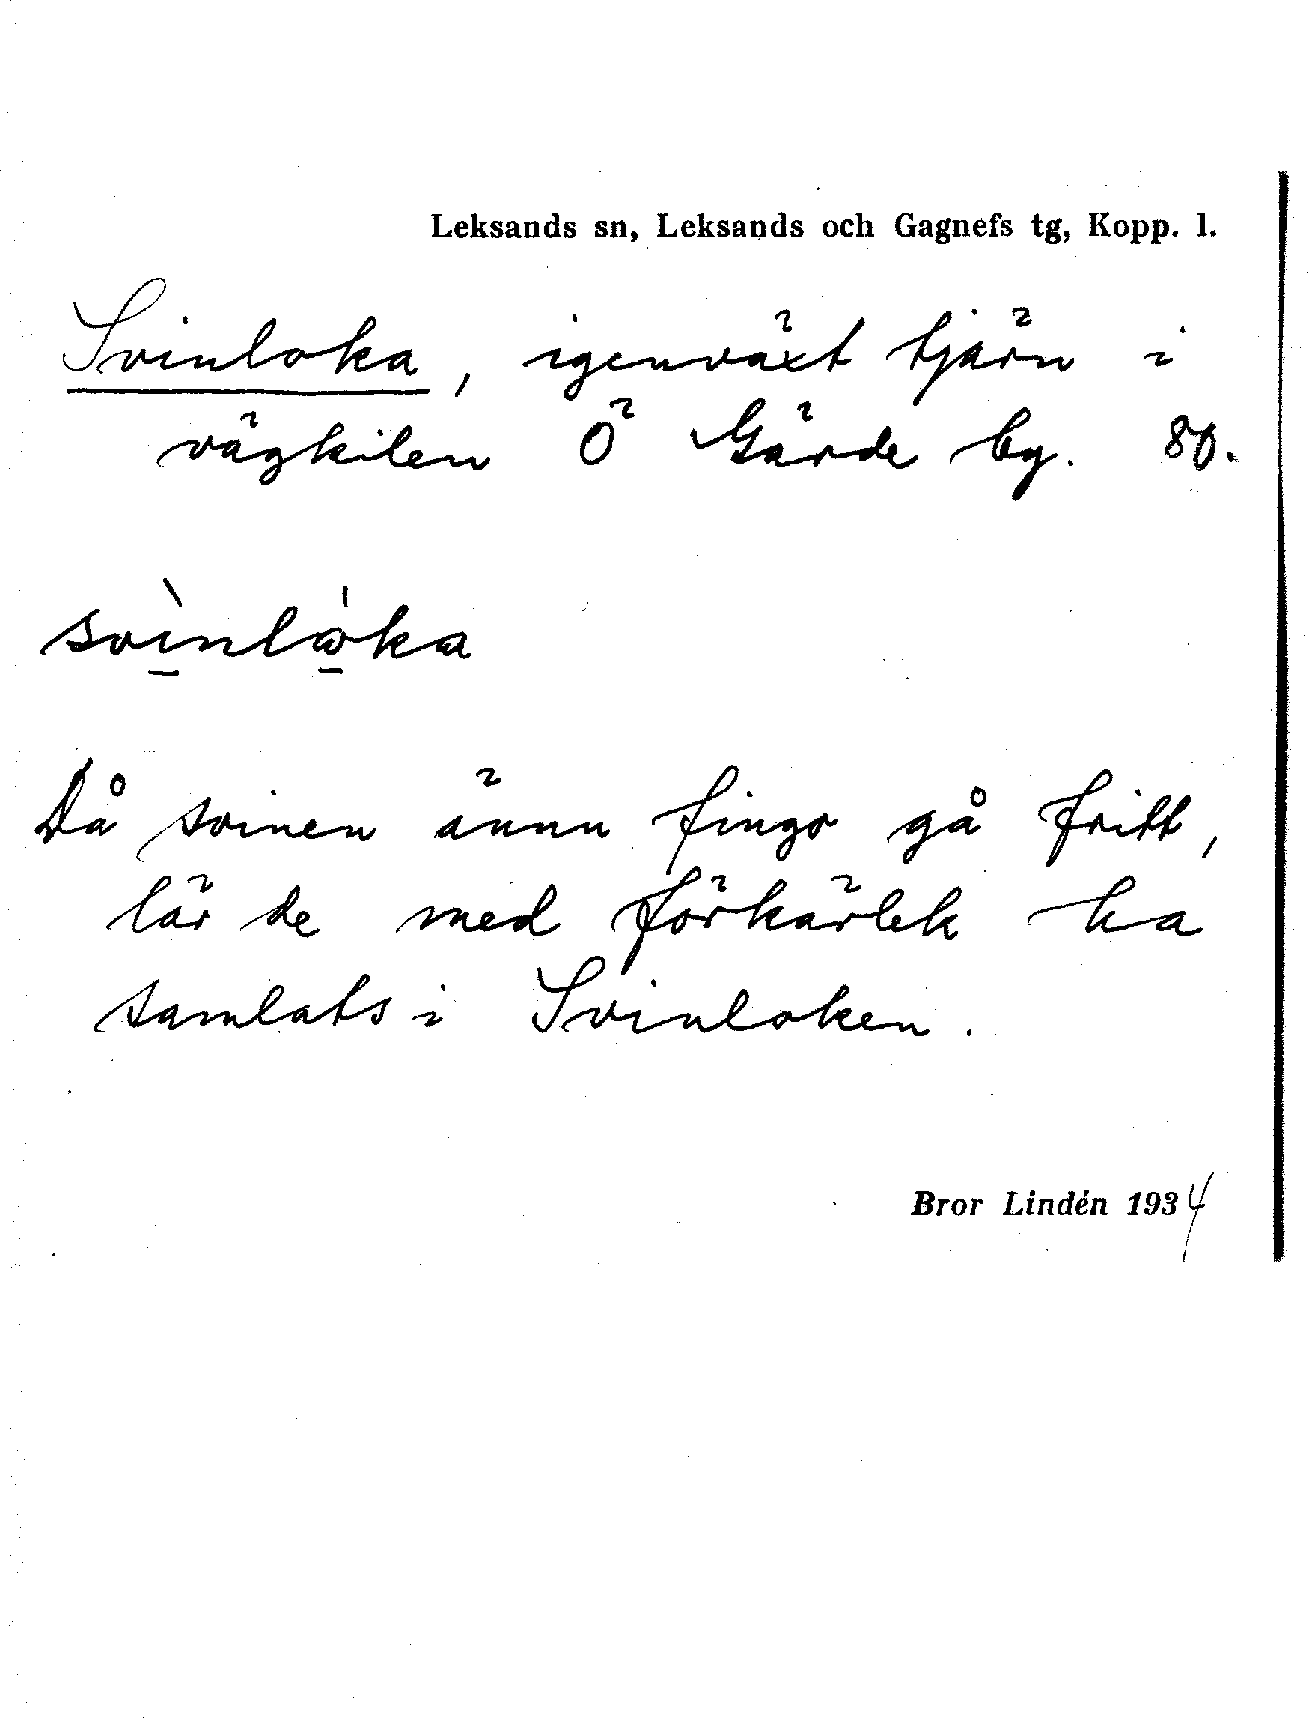 Leksands sn, Leksands och Gagnefs tg, Kopp. l.
Svinloka, igenväxt tjärn i
vägkilen Ö Gärde by. 80.
svì̱nlω̱̍ka
Då svinen ännu fingo gå fritt,
lär de med förkärlek ha
samlats i Svinloken.
Bror Lindén 1934